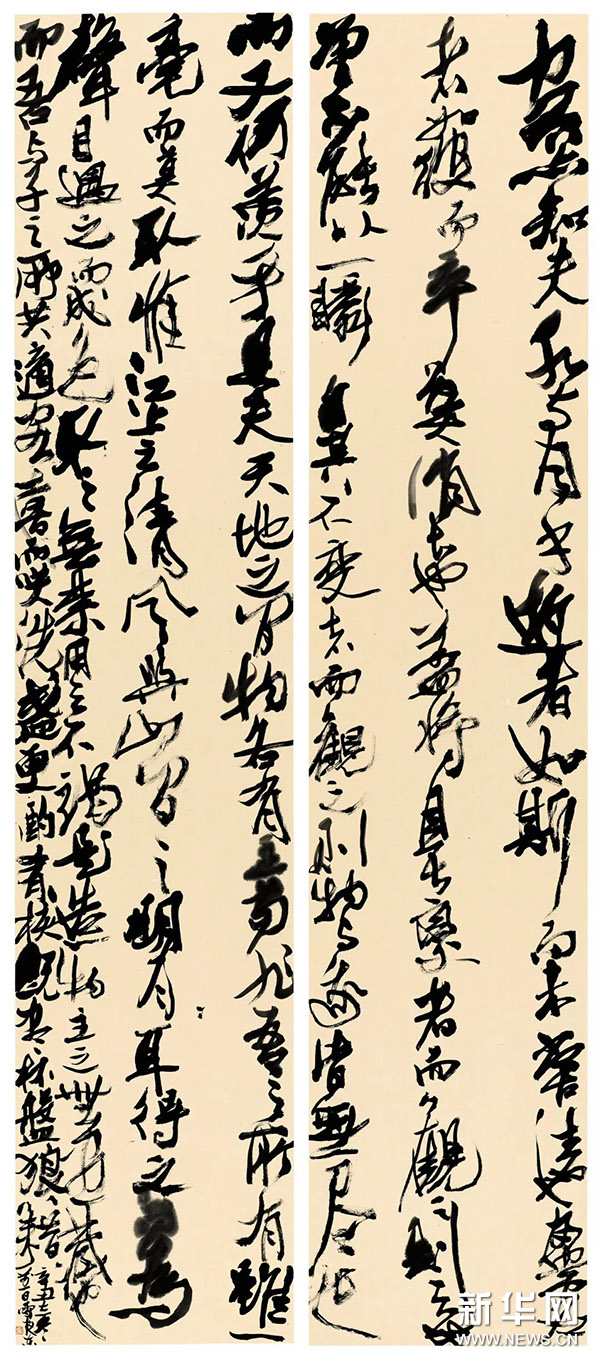 客亦知夫水与月乎逝者如斯而未嘗往也盈虚
者如彼而卒莫消长也盖将自其變者而觀之則天地
曾不能以一瞬自其不變者而觀之則物与我皆無尽也
而又何羡乎且夫天地之间物各有主苟非吾之所有雖一
毫而莫取惟江上之清风與山间之明月耳得之為
聲目遇之而成色取之無禁用之不竭是造物主之無尽藏也
而吾与子之所共適客喜而笑洗盞更酌肴核既盡杯盤狼藉
辛丑
新华网
WWW.NEWS.CN